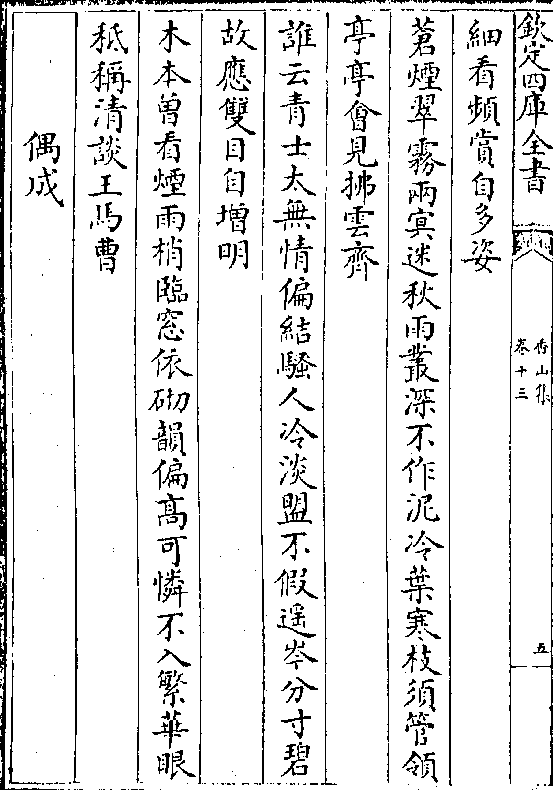 欽定四庫全書
香山集
卷十三
五
細看頻賞自多姿
蒼煙翠霧兩㝠迷秋雨叢深不作泥冷葉寒枝須管領
亭亭會見拂雲齊
誰云青士太無情偏結騷人冷淡盟不假遥岑分寸碧
故應雙目自增明
木本曽看煙雨梢臨窓依砌韻偏髙可憐不入繁華眼
秖稱清談王馬曹
偶成